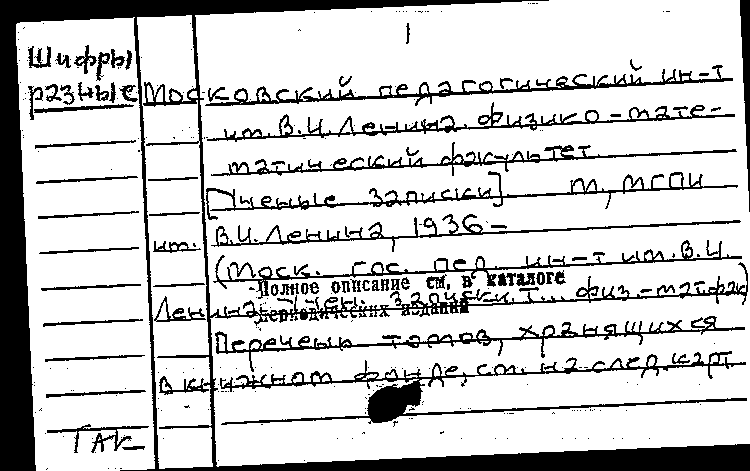 1
Шифры
разные Московский педагогический ин-т
им. В.И. Ленина. Физико-мате-
матический факультет.
[Ученые записки]. М., МГПИ
им. В.И. Ленина, 1936-
(Моск. гос. пед. ин-т им. В.И.
Полное описание см. в каталоге
Ленина. Учен. записки. Т... физ.-мат. фак)
периодических изданий
Перечень томов, хранящихся
в книжном фонде, см. на след. карт.
ГАК